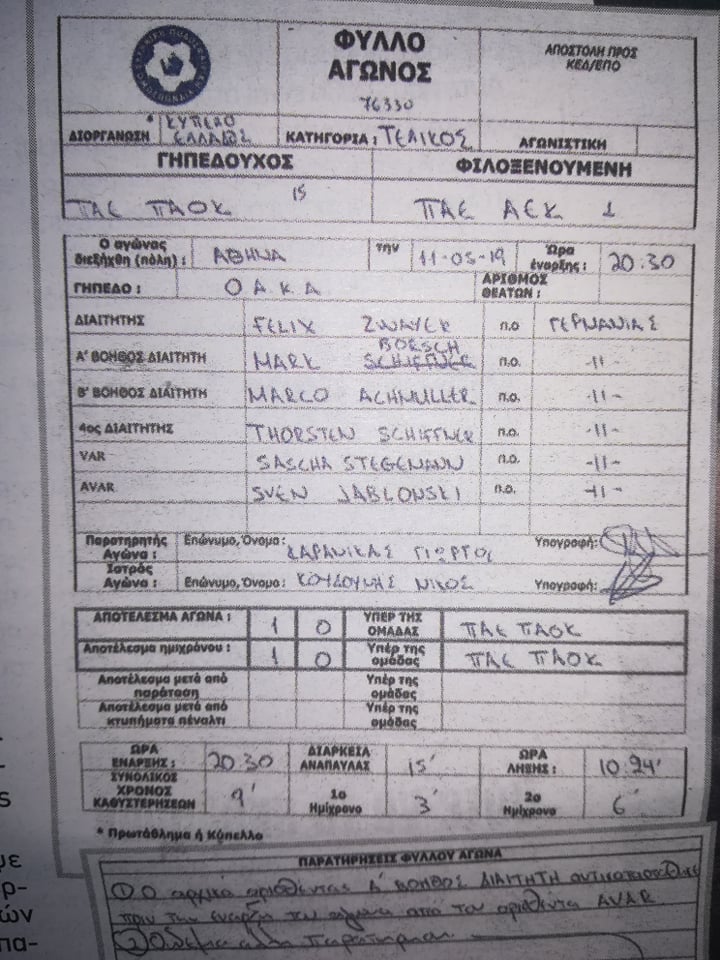 ΦΥΛΛΟ
ΑΓΩΝΟΣ
76330
ΑΠΟΣΤΟΛΗ ΠΡΟΣ
ΚΕΔ/ΕΠΟ
* ΔΙΟΡΓΑΝΩΣΗ ΚΥΠΕΛΟ ΕΛΛΑΔΟΣ ΚΑΤΗΓΟΡΙΑ : ΤΕΛΙΚΟΣ ΑΓΩΝΙΣΤΙΚΗ
ΓΗΠΕΔΟΥΧΟΣ ΦΙΛΟΞΕΝΟΥΜΕΝΗ
ΠΑΕ ΠΑΟΚ 15 ΠΑΕ ΑΕΚ 1
Ο αγώνας
διεξήχθη (πόλη) : ΑΘΗΝΑ την 11-05-19 Ώρα έναρξης : 20:30
ΓΗΠΕΔΟ : Ο Α Κ Α ΑΡΙΘΜΟΣ ΘΕΑΤΩΝ :
ΔΙΑΙΤΗΤΗΣ FELIX ZWAYER π.ο ΓΕΡΜΑΝΙΑΣ
BORSCH
Α' ΒΟΗΘΟΣ ΔΙΑΙΤΗΤΗ MARK SCHIFFNER π.ο. -11-
Β' ΒΟΗΘΟΣ ΔΙΑΙΤΗΤΗ MARCO ACHMULLER π.ο. -11-
4ος ΔΙΑΙΤΗΤΗΣ THORSTEN SCHIFFNER π.ο. -11-
VAR SASCHA STEGEMANN π.ο. -11-
AVAR SVEN JABLONSKI π.ο. -11-
Παρατηρητής
Αγώνα : Επώνυμο, Όνομα : ΚΑΡΑΝΙΚΑΣ ΓΙΩΡΓΟΣ Υπογραφή :
Ιατρός
Αγώνα : Επώνυμο, Όνομα : ΚΟΥΔΟΥΝΗΣ ΝΙΚΟΣ Υπογραφή :
ΑΠΟΤΕΛΕΣΜΑ ΑΓΩΝΑ : 1 0 ΥΠΕΡ ΤΗΣ ΟΜΑΔΑΣ ΠΑΕ ΠΑΟΚ
Αποτέλεσμα ημιχρόνου : 1 0 Υπέρ της ομάδας ΠΑΕ ΠΑΟΚ
Αποτέλεσμα μετά από
παράταση Υπέρ της ομάδας
Αποτέλεσμα μετά από
κτυπήματα πέναλτι Υπέρ της ομάδας
ΩΡΑ
ΕΝΑΡΞΗΣ : 20:30 ΔΙΑΡΚΕΙΑ ΑΝΑΠΑΥΛΑΣ 15' ΩΡΑ ΛΗΞΗΣ : 10:24'
ΣΥΝΟΛΙΚΟΣ
ΧΡΟΝΟΣ
ΚΑΘΥΣΤΕΡΗΣΕΩΝ 9' 1ο Ημίχρονο 3' 2ο Ημίχρονο 6'
* Πρωτάθλημα ή Κύπελλο
ΠΑΡΑΤΗΡΗΣΕΙΣ ΦΥΛΛΟΥ ΑΓΩΝΑ
① Ο αρχικά ορισθέντας Α' ΒΟΗΘΟΣ ΔΙΑΙΤΗΤΗ αντικαταστάθηκε
πριν την έναρξη του αγώνα από τον ορισθέντα AVAR
② Ουδεμία άλλη παρατήρηση